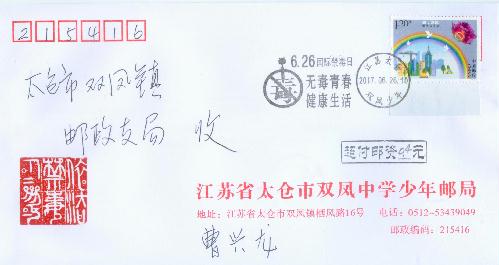 215416
6.26国际禁毒日
无毒青春
健康生活
江苏太仓
2017.06.26.10
双凤少年
太仓市双凤镇
邮政支局 收
江苏省太仓市双凤中学少年邮局
地址：江苏省太仓市双凤镇栖凤路16号 电话：0512-53439049
邮政编码：215416
曹兴龙